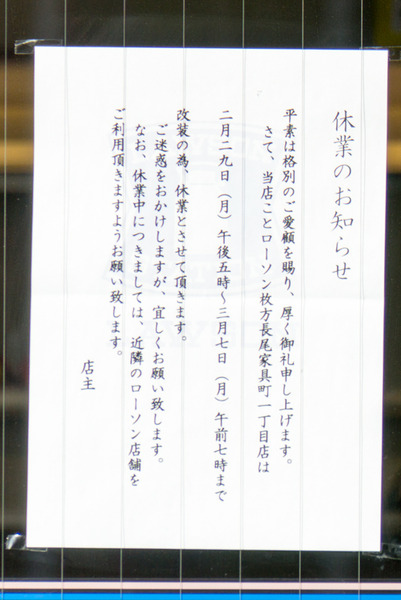 休業のお知らせ
平素は格別のご愛顧を賜り、厚く御礼申し上げます。
さて、当店ことローソン枚方長尾家具町一丁目店は
二月二九日（月）午後五時～三月七日（月）午前七時まで
改装の為、休業とさせて頂きます。
ご迷惑をおかけしますが、宜しくお願い致します。
なお、休業中につきましては、近隣のローソン店舗を
ご利用頂きますようお願い致します。
店主